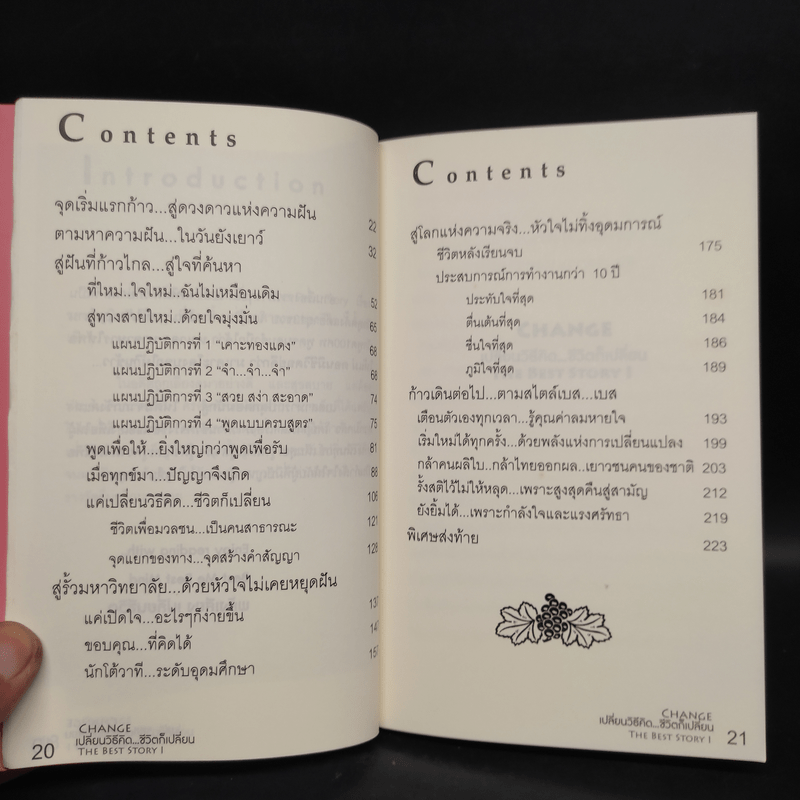 Contents
จุดเริ่มแรกก้าว...สู่ดวงดาวแห่งความฝัน 22
ตามหาความฝัน...ในวันยังเยาว์ 32
สู่ฝันที่ก้าวไกล...สู่ใจที่ค้นหา
ที่ใหม่..ใจใหม่...ฉันไม่เหมือนเดิม 52
สู่ทางสายใหม่...ด้วยใจมุ่งมั่น 65
แผนปฏิบัติการที่ 1 "เคาะทองแดง" 68
แผนปฏิบัติการที่ 2 "จำ...จำ...จำ" 68
แผนปฏิบัติการที่ 3 "สวย สง่า สะอาด" 74
แผนปฏิบัติการที่ 4 "พูดแบบครบสูตร" 75
พูดเพื่อให้..ยิ่งใหญ่กว่าพูดเพื่อรับ 81
เมื่อทุกข์มา...ปัญญาจึงเกิด 88
แค่เปลี่ยนวิธีคิด...ชีวิตก็เปลี่ยน 106
ชีวิตเพื่อมวลชน...เป็นคนสาธารณะ 121
จุดแยกของทาง...จุดสร้างคำสัญญา 128
สู่รั้วมหาวิทยาลัย...ด้วยหัวใจไม่เคยหยุดฝัน
แค่เปิดใจ...อะไรๆก็ง่ายขึ้น
ขอบคุณ...ที่คิดได้
นักโต้วาที...ระดับอุดมศึกษา
20
CHANGE
เปลี่ยนวิธีคิด...ชีวิตก็เปลี่ยน
THE BEST STORY I
Contents
สู่โลกแห่งความจริง...หัวใจไม่ทิ้งอุดมการณ์
ชีวิตหลังเรียนจบ 175
ประสบการณ์การทำงานกว่า 10 ปี
ประทับใจที่สุด 181
ตื่นเต้นที่สุด 184
ชื่นใจที่สุด 186
ภูมิใจที่สุด 189
ก้าวเดินต่อไป...ตามสไตล์เบส...เบส
เตือนตัวเองทุกเวลา...รู้คุณค่าลมหายใจ 193
เริ่มใหม่ได้ทุกครั้ง..ด้วยพลังแห่งการเปลี่ยนแปลง 199
กล้าคนผลิใบ..กล้าไทยออกผล..เยาวชนคนของชาติ 203
รั้งสติไว้ไม่ให้หลุด...เพราะสูงสุดคืนสู่สามัญ 212
ยังยิ้มได้...เพราะกำลังใจและแรงศรัทธา 219
พิเศษส่งท้าย 223
CHANGE
เปลี่ยนวิธีคิด...ชีวิตก็เปลี่ยน
THE BEST STORY I
21